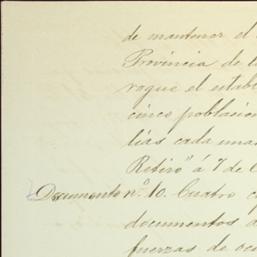 de mantener el
Provincia de l
roque el estab
cinco poblacion
lias cada una
Retiro" á 7 de C
Documento nº. 10. Cuatro c
documentos a
fuerzas de oc